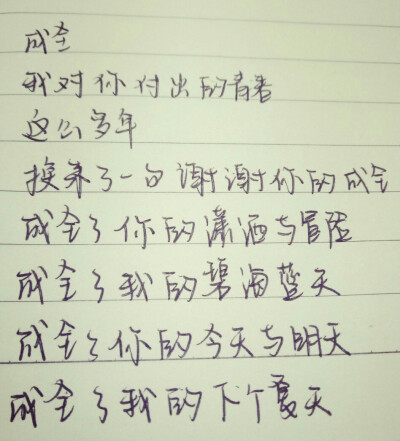 成全
我对你付出的青春
这么多年
换来了一句谢谢你的成全
成全了你的潇洒与冒险
成全了我的碧海蓝天
成全了你的今天与明天
成全了我的下个夏天